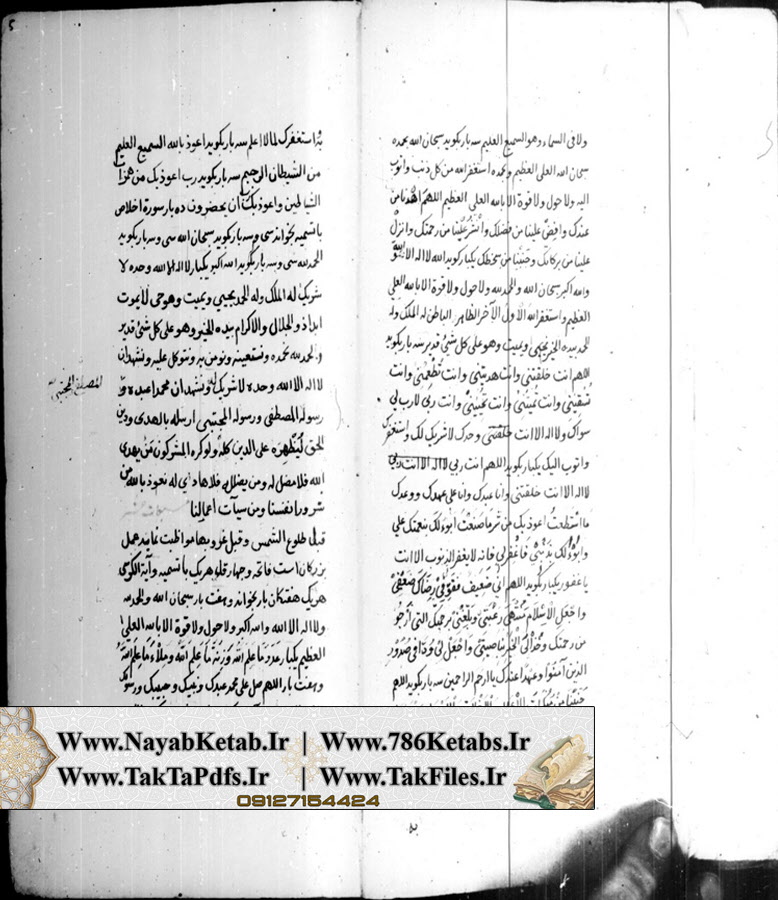 ولا فی السماء وهو السمیع العلیم سه بار بکوید سبحان الله بحمده
سبحان الله العلی العظیم وبحمده استغفرالله من کل ذنب واتوب
الیه ولا حول ولا قوة الا بالله العلی العظیم اللهم اهدنا من
عندک وافض علینا من فضلک وانشر علینا من رحمتک وانزل
علینا من برکاتک وجنبنا من سخطک یکبار کوید الله لا اله الا
والله اکبر سبحان الله والحمد لله ولا حول ولا قوة الا بالله العلی
العظیم واستغفر الله الاول الآخر الظاهر الباطن له الملک وله
الحمد بیده الخیر یحیی ویمیت وهو علی کل شئ قدیر سه بار بکوید
اللهم انت خلقتنی وانت هدیتنی وانت تطعمنی وانت
تسقینی وانت تمیتنی وانت تحیینی وانت ربی لا رب لی
سواک ولا اله الا انت خلقتنی وحدک لا شریک لک واستغفرک
واتوب الیک یکبار بکوید اللهم انت ربی لا اله الا انت ربی
لا اله الا انت خلقتنی وانا عبدک وانا علی عهدک ووعدک
ما استطعت اعوذ بک من شر ما صنعت ابوء لک بنعمتک علی
وابوء لک بذنبی فاغفرلی فانه لا یغفر الذنوب الا انت
یا غفور یکبار بکوید اللهم انی ضعیف فقو فی رضاک ضعفی
واجعل الاسلام منتهی رغبتی وبلغنی برحمتک التی ارجو
من رحمتک وخذ الی الخیر بناصیتی واجعل لی ودا فی صدور
الذین آمنوا وعهدا عندک یا ارحم الراحمین سه بار بکوید اللهم
جنبنا من منکرات
به
5
استغفرک لما لا اعلم سه بار بکوید اعوذ بالله السمیع العلیم
من الشیطان الرجیم سه بار بکوید رب اعوذ بک من همزات
الشیاطین واعوذ بک ان یحضرون ده بار سورة اخلاص
با تسمیه بخواند سی وسه بار بکوید سبحان الله سی وسه بار بکوید
الحمد لله سی وسه بار بکوید الله اکبر یکبار لا اله الا الله وحده لا
شریک له الملک وله الحمد یحیی ویمیت وهو حی لا یموت
ابدا ذو الجلال والاکرام بیده الخیر وهو علی کل شئ قدیر
والحمد لله نحمده ونستعینه ونؤمن به ونتوکل علیه ونشهد ان
لا اله الا الله وحده لا شریک له ونشهد ان محمدا عبده و
رسوله المصطفی ورسوله المجتبی ارسله بالهدی ودین
الحق لیظهره علی الدین کله ولو کره المشرکون من یهدی
الله فلا مضل له ومن یضلل فلا هادی له نعوذ بالله من
شرور انفسنا ومن سیآت اعمالنا
قبل طلوع الشمس وقبل غروبها مواظبت نمایند عمل
بزرکان است فاتحه وچهار قل هر یک با تسمیه وآیة الکرسی
هر یک هفتکان بار بخواند وهفت بار سبحان الله والحمد لله
ولا اله الا الله والله اکبر ولا حول ولا قوة الا بالله العلی
العظیم یکبار عدد ما علم الله وزنة ما علم الله وملاء ما علم الله
وهفت بار اللهم صل علی محمد عبدک ونبیک وحبیبک ورسولک
المصطفی المجتبی
Www.NayabKetab.Ir | Www.786Ketabs.Ir
Www.TakTaPdfs.Ir | Www.TakFiles.Ir
09127154424